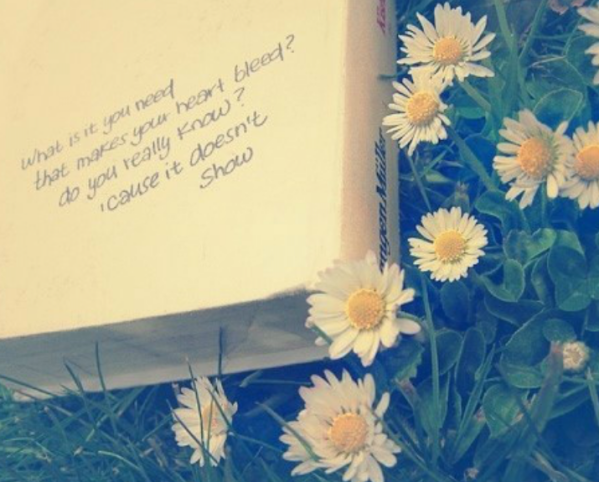 what is it you need
that makes your heart bleed?
do you really know?
'cause it doesn't
show
Müller